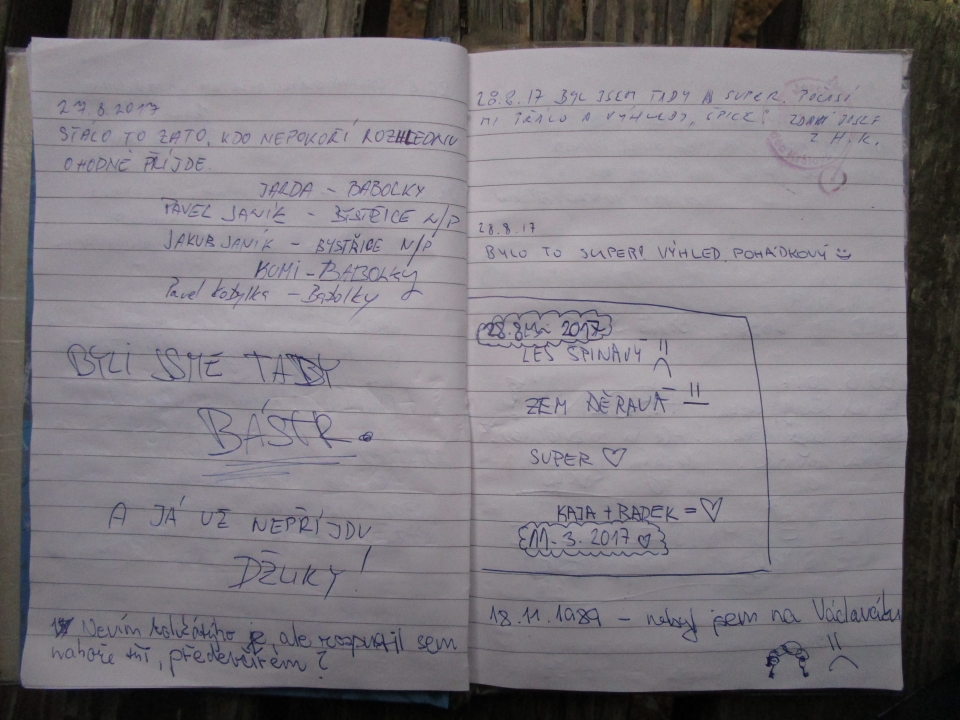 27.8.2017
STÁLO TO ZATO, KDO NEPOKOŘÍ ROZHLEDNU
OHODNĚ PŘÍJDE.
JARDA - BABOLKY
PAVEL JANÍK - BYSTŘICE N/P
JAKUB JANÍK - BYSTŘICE N/P
KUMI - BABOLKY
Pavel Kobylka - Babolky
BYLI JSME TADY
BÁSTR.
A JÁ UŽ NEPŘÍJDU
DŽUKY!
Nevím kolikátýho je, ale rozpustil sem
nahoře , předevčírem?
28.8.17 BYL JSEM TADY A SUPER. POČASÍ
MI A VÝHLED, ŠPICE! ZDRAVÍ JOSEF
Z H.K.
28.8.17
BYLO TO SUPER! VÝHLED POHÁDKOVÝ
28.8. 2017
LES ŠPINAVÝ
ZEM DĚRAVÁ
SUPER ♡
KAJA + RADEK = ♡
11.3.2017 ♡
18.11.1989 - nebyl jsem na Václaváku